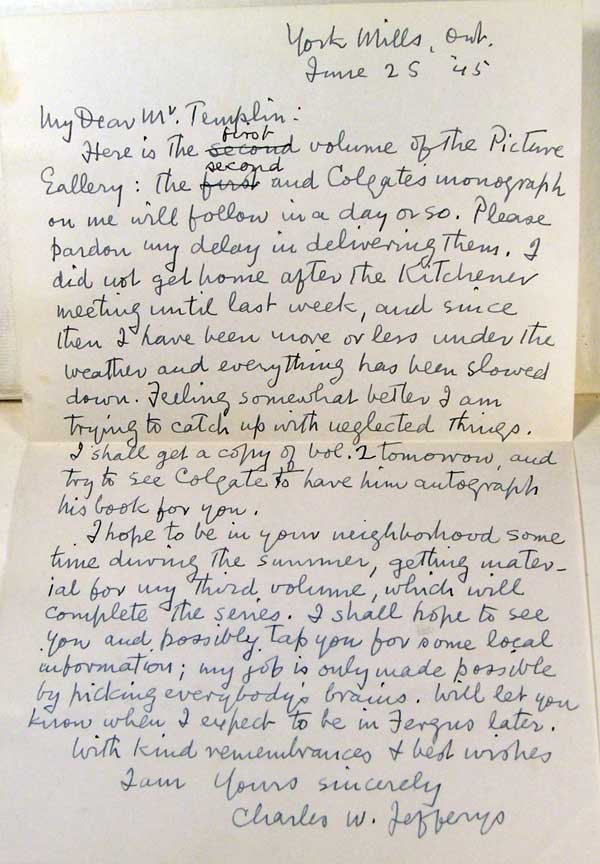 York Mills, Ont.
June 25 '45
My Dear Mr. Templin:
first
Here is the second volume of the Picture
second
Gallery: the first and Colgates monograph
on me will follow in a day or so. Please
pardon my delay in delivering them. I
did not get home after the Kitchener
meeting until last week, and since
then I have been more or less under the
weather and everything has been slowed
down. Feeling somewhat better I am
trying to catch up with neglected things.
I shall get a copy of Vol. 2 tomorrow, and
try to see Colgate to have him autograph
his book for you.
I hope to be in your neighborhood some
time during the summer, getting mater-
ial for my third volume, which will
complete the series. I shall hope to see
you and possibly tap you for some local
information; my job is only made possible
by picking everybody's brains. Will let you
know when I expect to be in Fergus later.
With kind remembrances & best wishes
I am Yours sincerely
Charles W. Jefferys